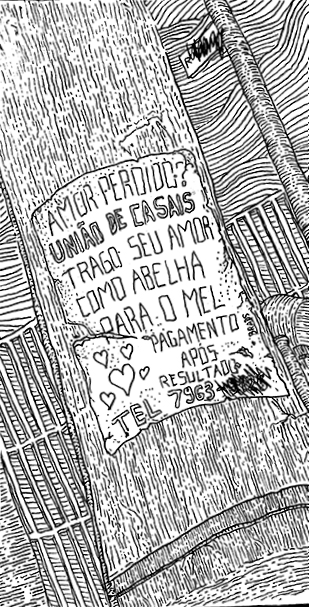 AMOR PERDIDO?
UNIÃO DE CASAIS
TRAGO SEU AMOR
COMO ABELHA
PARA O MEL
PAGAMENTO
APÓS
RESULTADO
TEL 7963